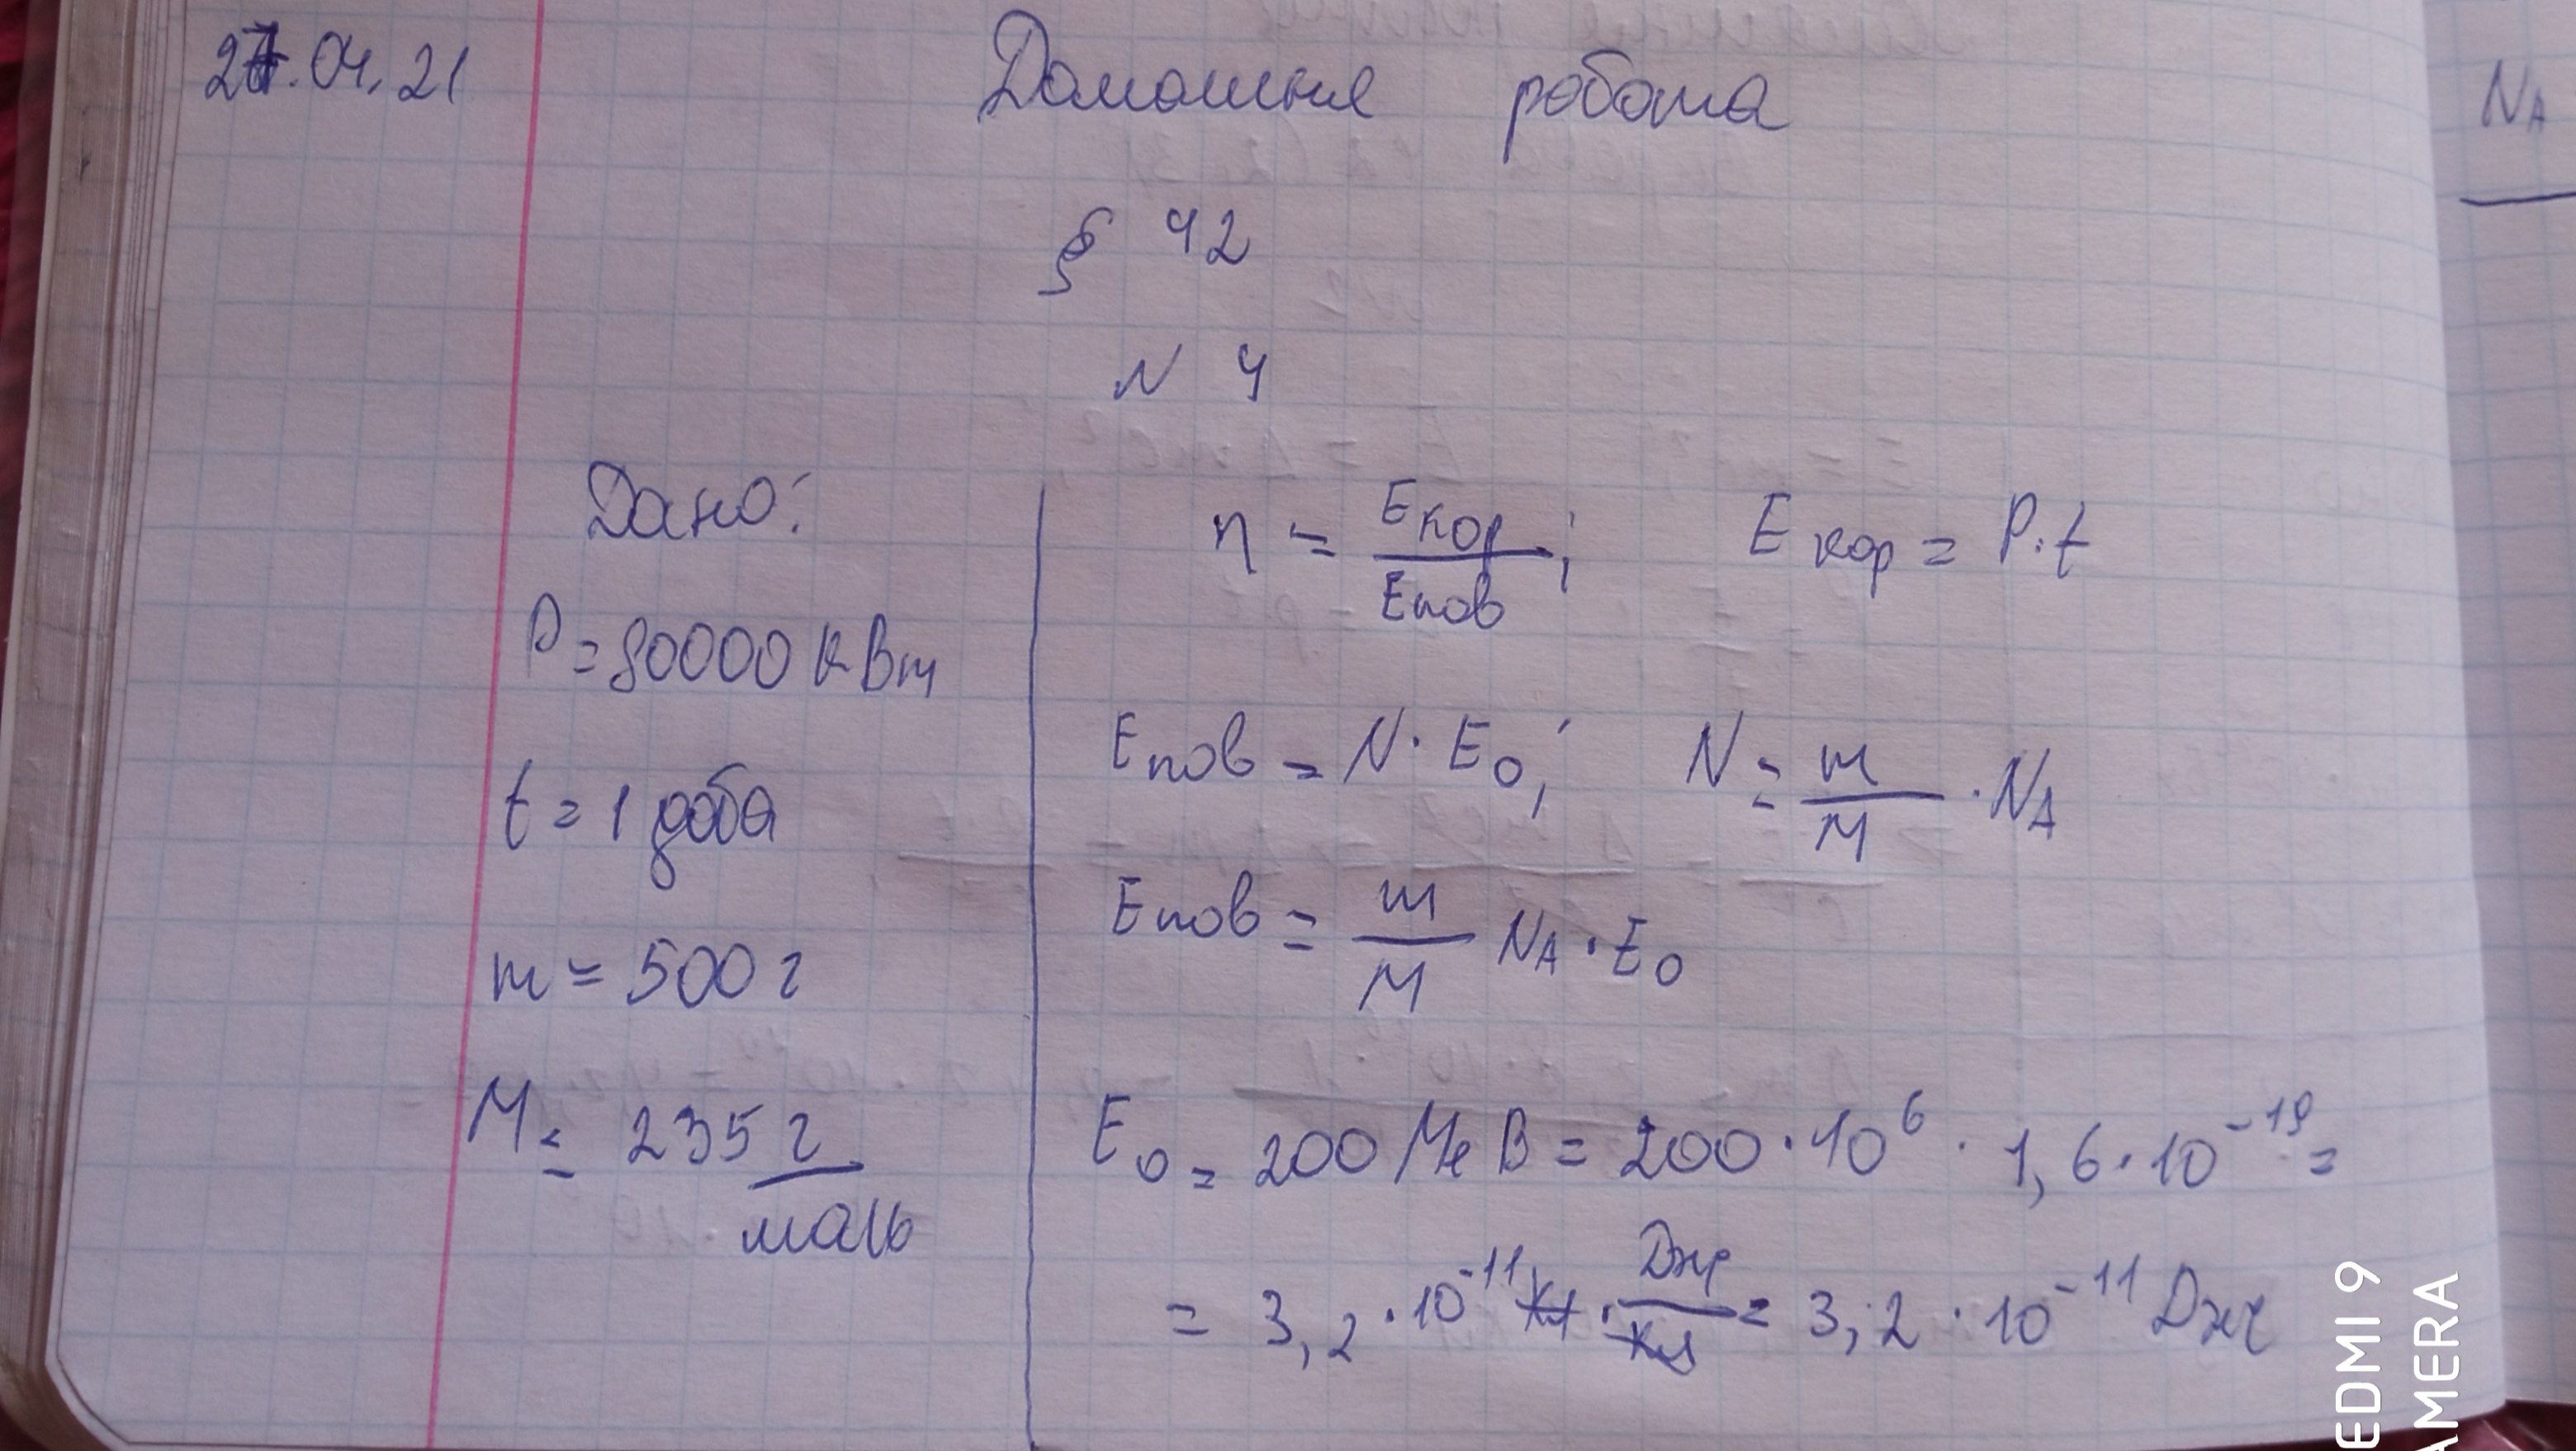 27.04.21 Домашня робота
§ 42
N 4
Дано:
P = 80000 кВт
t = 1 доба
m = 500 г
M = 235 г/моль
η = Eкор/Eпов; Eкор = P·t
Eпов = N·E₀; N = m/M · NA
Eпов = m/M NA · E₀
E₀ = 200 МеВ = 200·10⁶ · 1,6·10⁻¹⁹ =
= 3,2·10⁻¹¹ Кл · Дж/Кл = 3,2·10⁻¹¹ Дж
NA
EDMI 9
AMERA